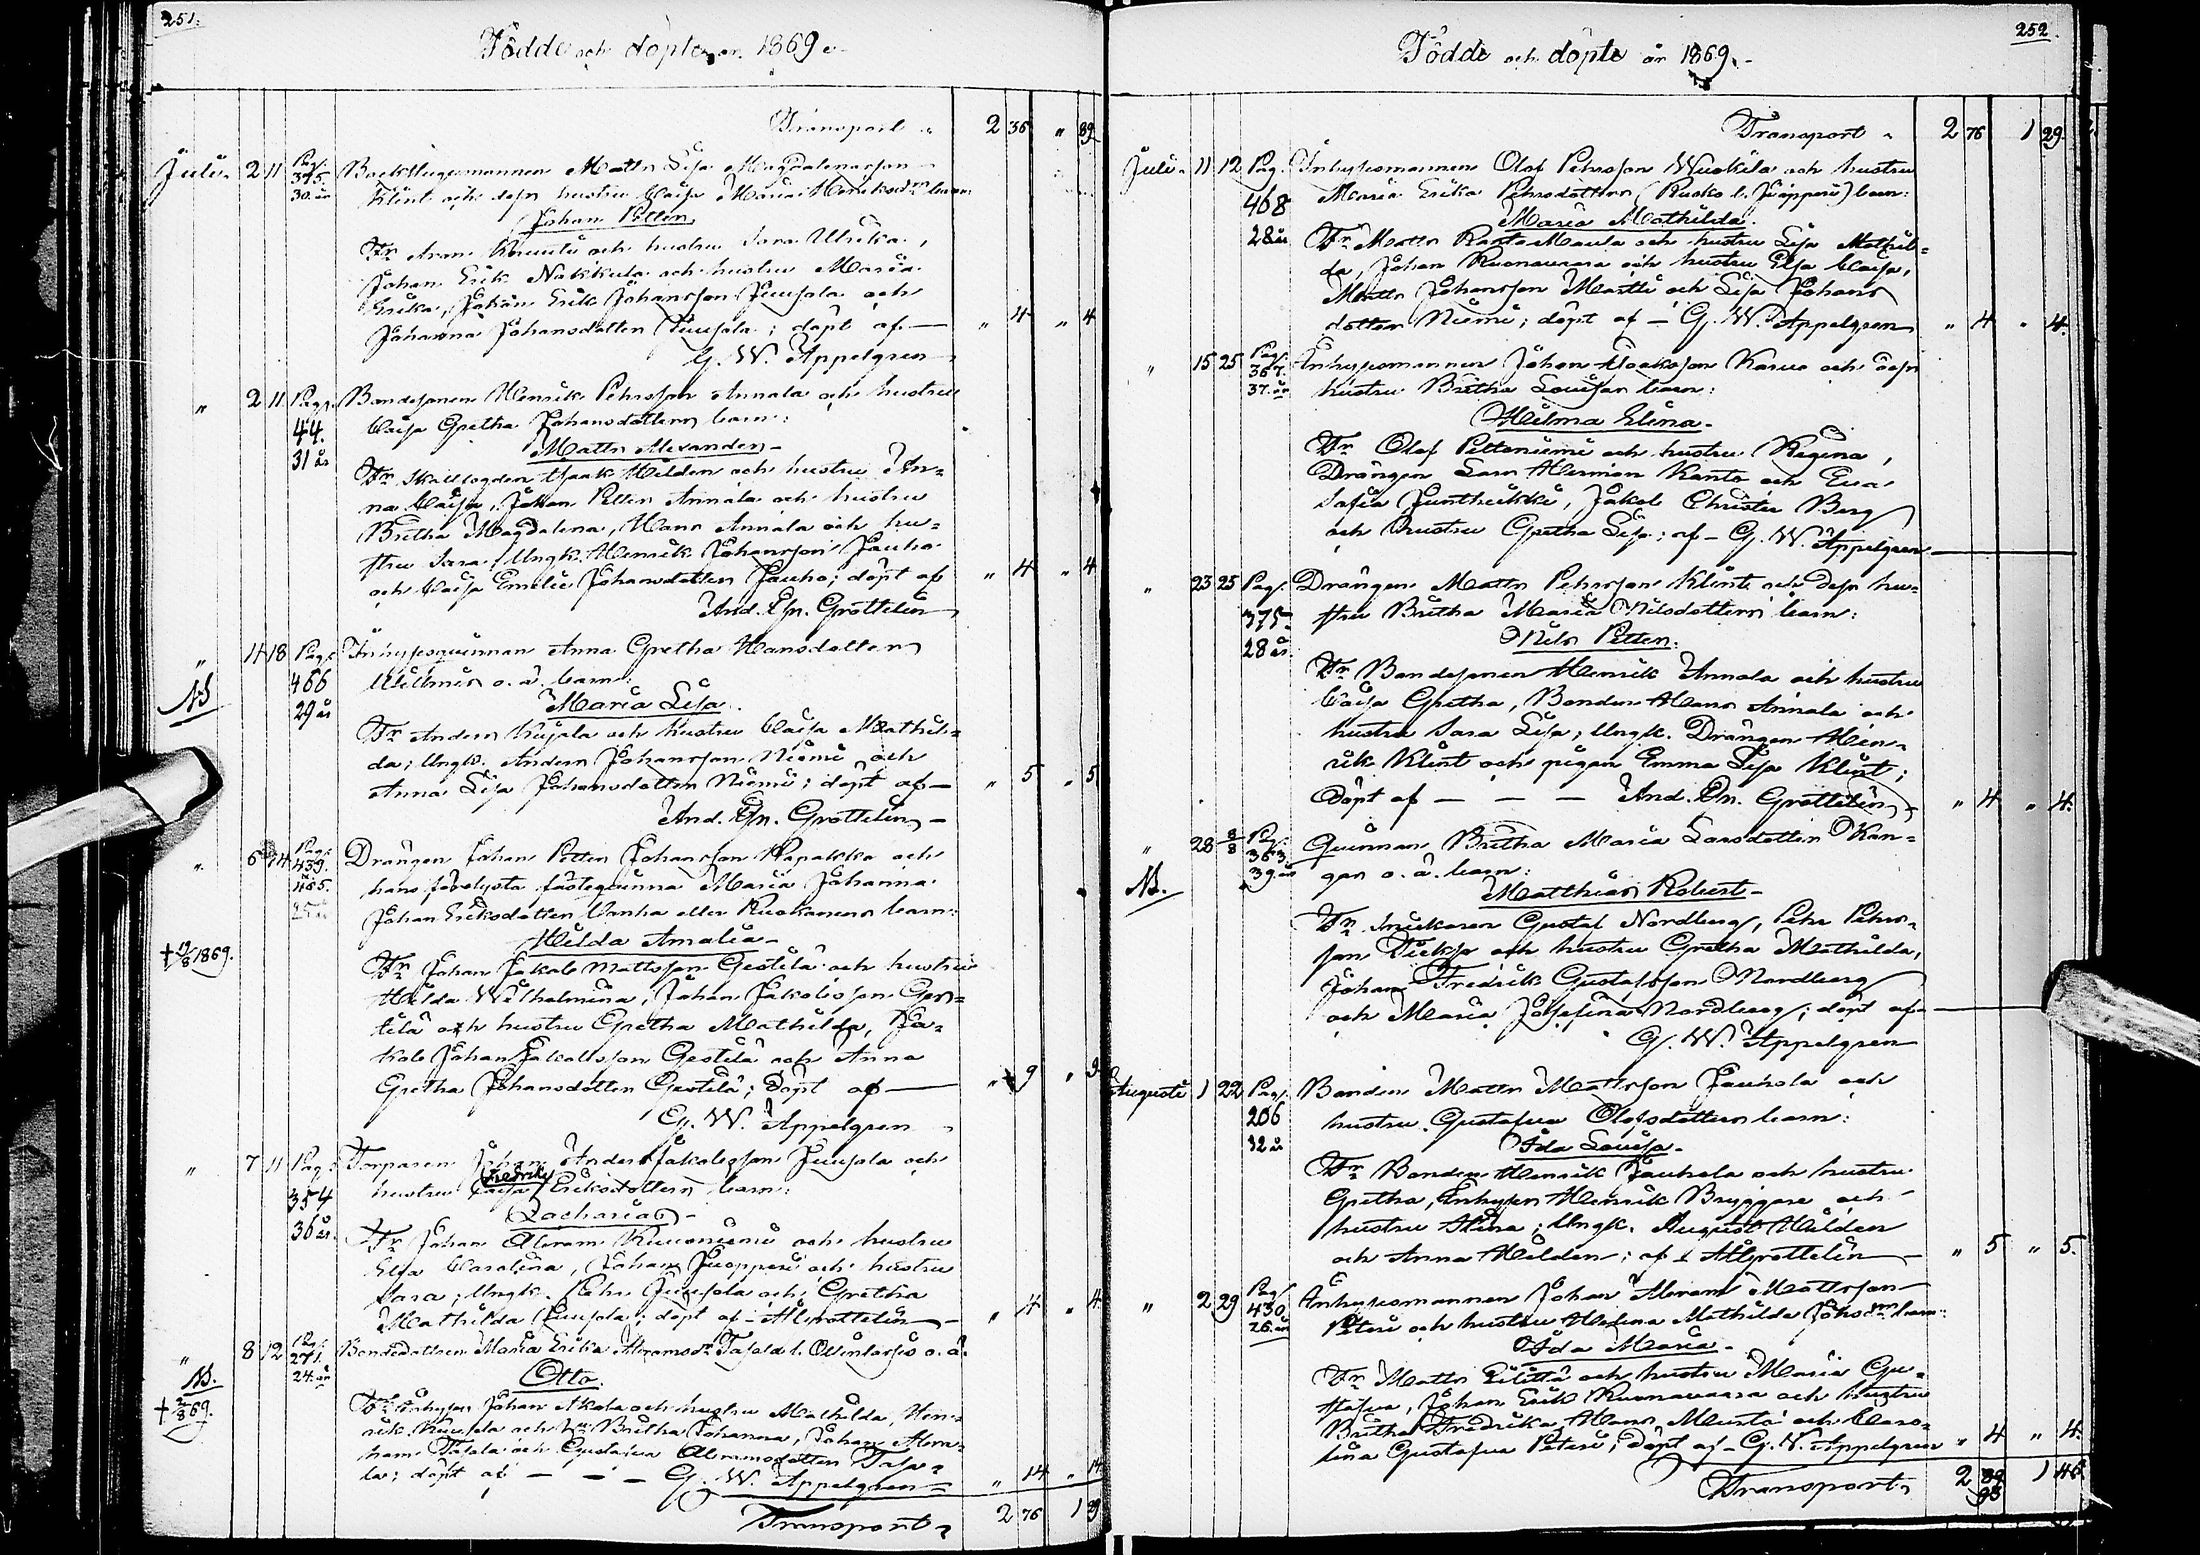 251.
Födde och döpte år 1869.
Transport " 2 36 " 89
Juli. 2 11 Pag. 375. 30. år Backstugumannen Matts Lisa Magdalenasson
Klint och dess hustru Caisa Maria Henriksdrs barn
Johan Petter
Fr. Aron Knuuti och hustru Sara Ulrika,
Johan Erik Nakkula och hustru Maria
Erika, Johan Erik Johansson Juusola och
Johanna Johansdotter Juusola; döpt af — " 4 " 4
G. W. Appelgren
" 2 11 Pag. 44. 31 år Bondesonen Henrik Pehrsson Annala och hustru
Caisa Gretha Johansdotters barn:
Matts Alexander
Fr. Skallfogden Isaak Hilden och hustru An-
na Caisa, Johan Petter Annala och hustru
Britha Magdalena, Hans Annala och hu-
stru Sara; Ungk. Henrik Johansson Jauho
och Caisa Emelie Johansdotter Jauho; döpt af " 4 " 4
And. Gr. Grottelin
" 4 18 Pag. 466 29 år Inhysesqvinnan Anna Gretha Hansdotter
NB
Maria Lisa
Fr. Anders Kujala och hustru Caisa Mathil-
da; Ungk. Anders Johansson Niemi och
Anna Lisa Johansdotter Niemi; döpt af — " 5 " 5
And. Gr. Grottelin
" 6 14 Pag. 439. 465. Drängen Johan Petter Johansson Papakka och
hans förelysta fästeqvinna Maria Johanna
Johan Eriksdotter Vanha eller Ruokanens barn:
† 19/8 1869.
Hilda Amalia
Fr. Johan Jakob Mattsson Gestilä och hustru
Hilda Wilhelmina, Johan Jakobsson Ges-
tilä och hustru Gretha Mathilda, Ja-
kob Johan Jakobsson Gestilä och Anna
Gretha Johansdotter Gestilä; döpt af — " 9 " 9
G. W. Appelgren
" 7 11 Pag. 354 36 år. Torparen Johan Anders Jakobsson Juusola och
hustru Caisa Fredrika Eriksdotters barn:
Zacharias
Fr. Johan Abram Kuusiniemi och hustru
Elsa Carolina, Johan Juopperi och hustru
Sara; Ungk. Pehr Juusola och Gretha
Mathilda Juusola; döpt af — AGrottelin " 4 " 4
" 8 12 Pag. 271. 24. år Bondedottren Maria Erika Abramsdr Tasala l. o. ä.
NB.
† 2/8 69.
Otto.
Fr. Inhysen Johan Skola och hustru Mathilda, Hen-
rik och hu Britha Johanna, Johan Abra-
ham Tasala och Gustafva Abramsdotter Tasa-
la; döpt af — — — G. W. Appelgren " 14 " 14
Transport 2 76 1 29
252.
Födde och döpte år 1869.
Transport 2 76 1 29.
Juli. 11 12 Pag. 468 28 år Inhysesmannen Olof Pehrsson Wuokila och hustru
Maria Erika Pehrsdotters (Rusko l. Juopperi) barn:
Maria Mathilda.
Fr. Matts RantaMaula och hustru Lisa Mathil-
da, Johan Ruonavaara och hustru Elsa Caisa,
Matts Johansson Martti och Lisa Johans
dotter Niemi; döpt af — G. W. Appelgren " 4 " 4.
" 15 25 Pag. 367. 37. år Inhysesmannen Johan Isaksson Karvo och dess
hustru Britha Louisas barn:
Hilma Elina.
Fr. Olof Peltoniemi och hustru Regina,
Drängen Lars Herman Kanto och Eva
Safia Juntheikki, Jakob Christer Berg
och hustru Gretha Lisa; af — G. W. Appelgren
" 23 25 Pag. 375. 28 år. Drängen Matts Pehrsson Klint och dess hu-
stru Britha Maria Nilsdotters barn:
Nils Petter.
Fr. Bondesonen Henrik Annala och hustru
Caisa Gretha, Bonden Hans Annala och
hustru Sara Lisa; Ungk. Drängen Hen-
rik Klint och pigan Emma Lisa Klint;
Döpt af — — — And. Gr. Grottelin " 4 " 4.
" 28 8/8 Pag. 363. 39. år Qvinnan Britha Maria Larsdotter Kan-
gas o. ä. barn:
NB.
Matthias Robert
Fr. Snickaren Gustaf Nordberg, Pehr Pehrs-
son Tiekso och hustru Gretha Mathilda,
Johan Fredrik Gustafsson Nordberg
och Maria Josefina Nordberg; döpt af —
G. W. Appelgren
Augusti 1 22 Pag. 206 32 år Bonden Matts Mattsson Jauhola och
hustru Gustafva Olofsdotters barn:
Ida Lovisa
Fr. Bonden Henrik Jauhola och hustru
Gretha, Inhysen Henrik Bryggare och
hustru Stina; Ungk. August Hilden
och Anna Hilden; af AGrottelin " 5 " 5.
" 2 29 Pag. 430 26. år Inhysesmannen Johan Abram Mattsson
Peteri och hustru Hedda Mathilda Johsdrs barn:
Ida Maria
Fr. Matts Eilittä och hustru Maria Gu-
stafva, Johan Erik Ruonavaara och hustru
Britha Fredrika, Hans Mursta och Caro-
lina Gustafva Peteri; döpt af — G. W. Appelgren " 4 " 4.
Transport 2 93 1 46